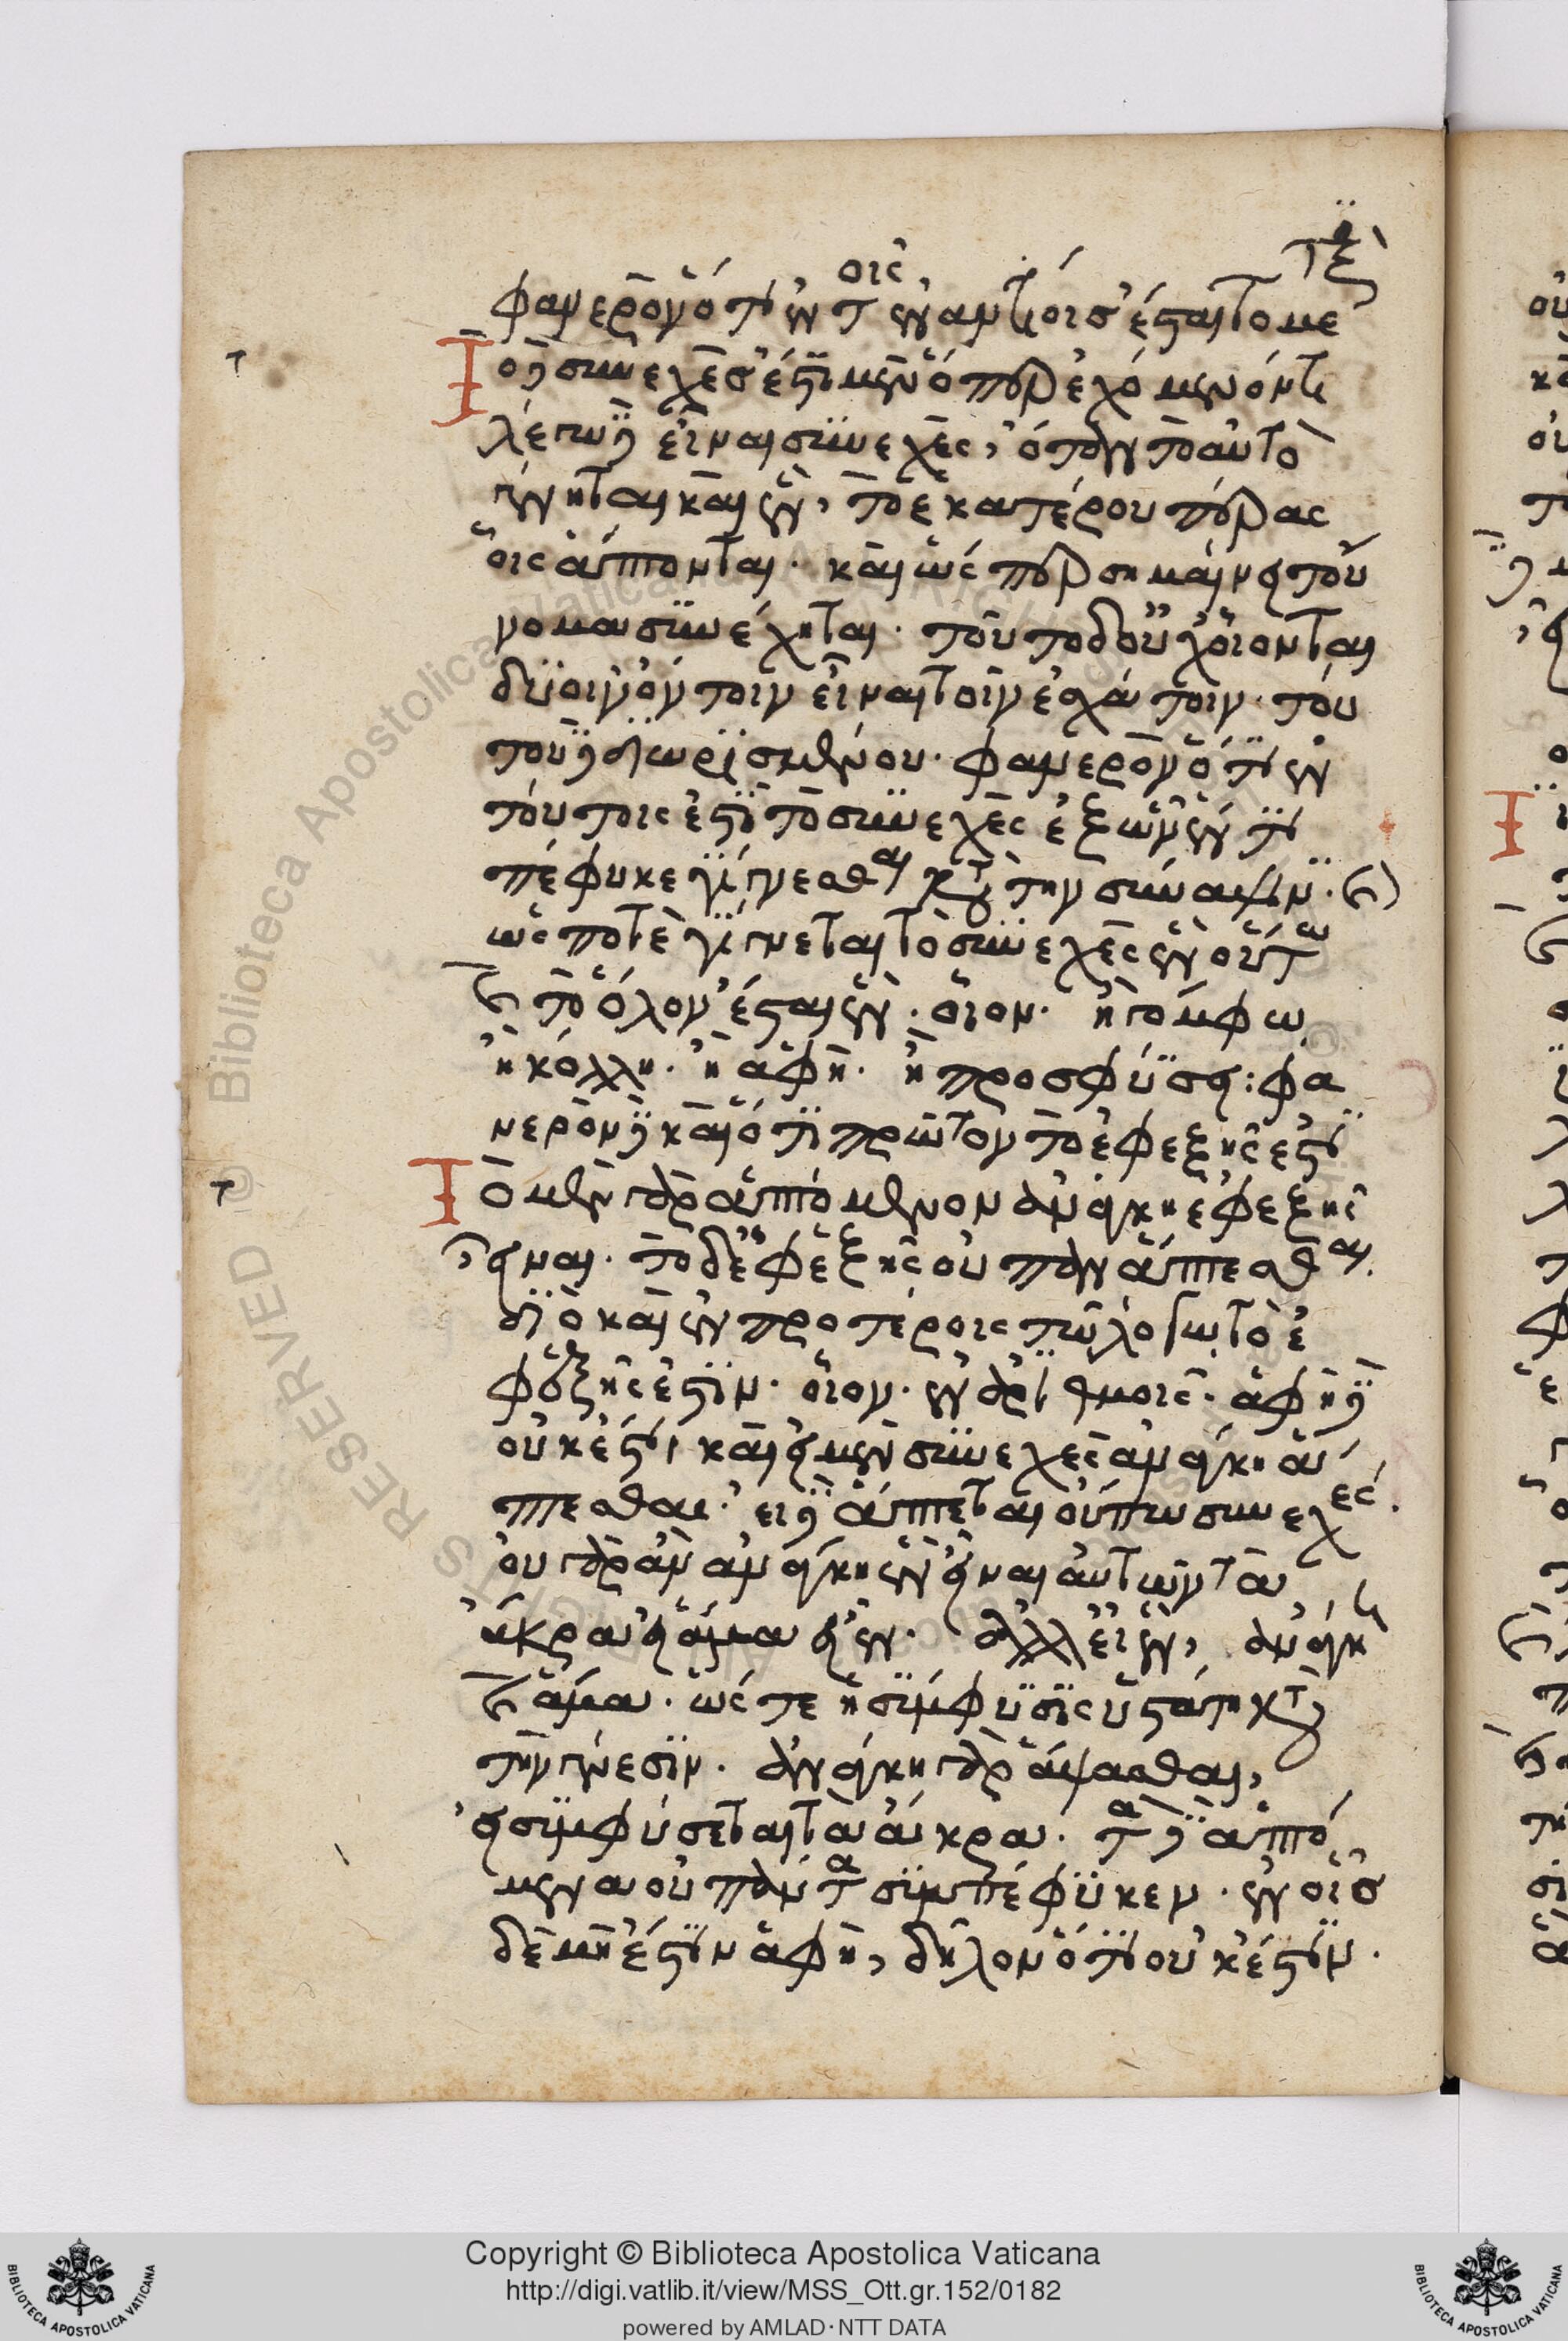 ταξύ
φανερὸν ὅτι ἐν τοῖς ἐναντίοισ ἔσται τὸ με
Τὸ δὲ συνεχὲσ ἔστι μὲν ὅπερ ἐχόμενόν τι
λέγω δὲ εἶναι συνεχὲς, ὅταν τὸ αὐτὸ
γένηται καὶ ἓν, τὸ ἑκατέρου πέρας
οἷς ἅπτονται. καὶ ὥσπερ σημαίνει τοὔ
νομα συνέχηται. τοῦτο δ' οὐχ οἷόν ται
δυοῖν ὄντοιν εἶναι τοῖν ἐσχάτοιν. τού
του δὲ διωρισμένου. φανερὸν ὅτι ἐν
τούτοις ἐστὶ τὸ συνεχὲς ἐξ ὧν ἕν τι
πέφυκε γίγνεσθαι κατὰ τὴν σύναψιν. καὶ
ὥς ποτὲ γίγνεται τὸ συνεχὲς ἓν οὕτω
καὶ τὸ ὅλον ἔσται ἓν. οἷον. ἢ γόμφω
ἢ κόλλη. ἢ ἁφῆ. ἢ προσφύσει: φα
νερὸν δὲ καὶ ὅτι πρῶτον τὸ ἐφεξῆς ἐστι
Τὸ μὲν γὰρ ἁπτόμενον ἀνάγκη ἐφεξῆς
εἶναι. τὸ δ' ἐφεξῆς οὐ πᾶν ἅπτεσθαι.
διὸ καὶ ἐν προτέροις τῶ λόγω τὸ ἐ
φεξῆς ἐστὶν. οἷον. ἐν ἀριθμοῖς. ἁφὴ δὲ
οὐκ ἔστι καὶ εἰ μὲν συνεχὲς ἀνάγκη ἅ
πτεσθαι. εἰ δὲ ἅπτεται οὔπω συνεχές.
οὐ γὰρ ἂν ἀνάγκη ἓν εἶναι αὐτῶν τὰ
ἄκρα εἰ ἅμα εἶεν. ἀλλ' εἰ ἓν, ἀνάγκη
καὶ ἅμα. ὥστε ἡ σύμφυσις ὑστάτη κατὰ
τὴν γένεσιν. ἀνάγκη γὰρ ἅψασθαι,
εἰ συμφύσεται τὰ ἄκρα. τὰ δὲ ἁπτό
μενα οὐ πάντα συμπέφυκεν. ἐν οἷσ
δὲ μὴ ἔστιν ἁφὴ, δῆλον ὅτι οὐκ ἔστιν.
Copyright © Biblioteca Apostolica Vaticana
http://digi.vatlib.it/view/MSS_Ott.gr.152/0182
powered by AMLAD·NTT DATA